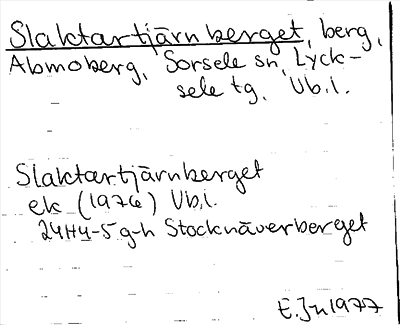 Slaktartjärnberget, berg,
Abmoberg, Sorsele sn, Lyck-
sele tg, Vb.l.
Slaktartjärnberget
ek (1976) Vb.l.
24H4-5g-h Stocknäverberget
E.Jn 1977